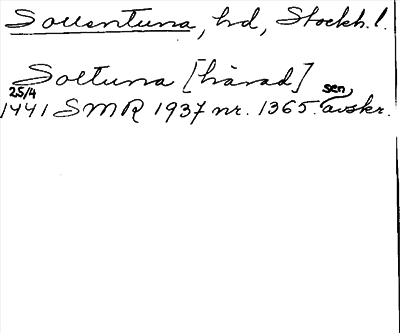 Sollentuna, hd, Stockh. l.
Soltuna [härad]
25/4 sen.
1441 SMR 1937 nr. 1365. avskr.